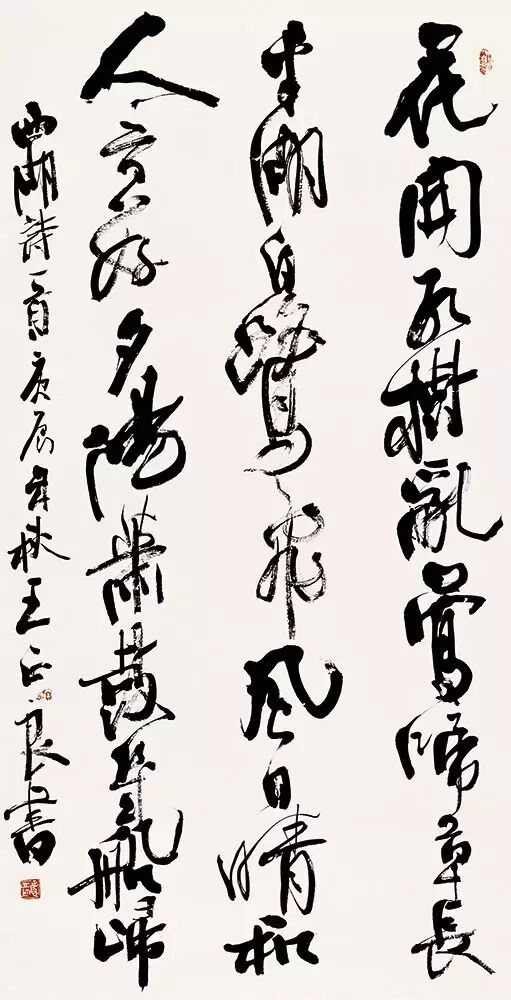 花開紅樹亂鶯啼草長
平湖白鷺飛風日晴和
人意好夕陽簫鼓幾船歸
西湖詩一首庚辰年秋王正良書